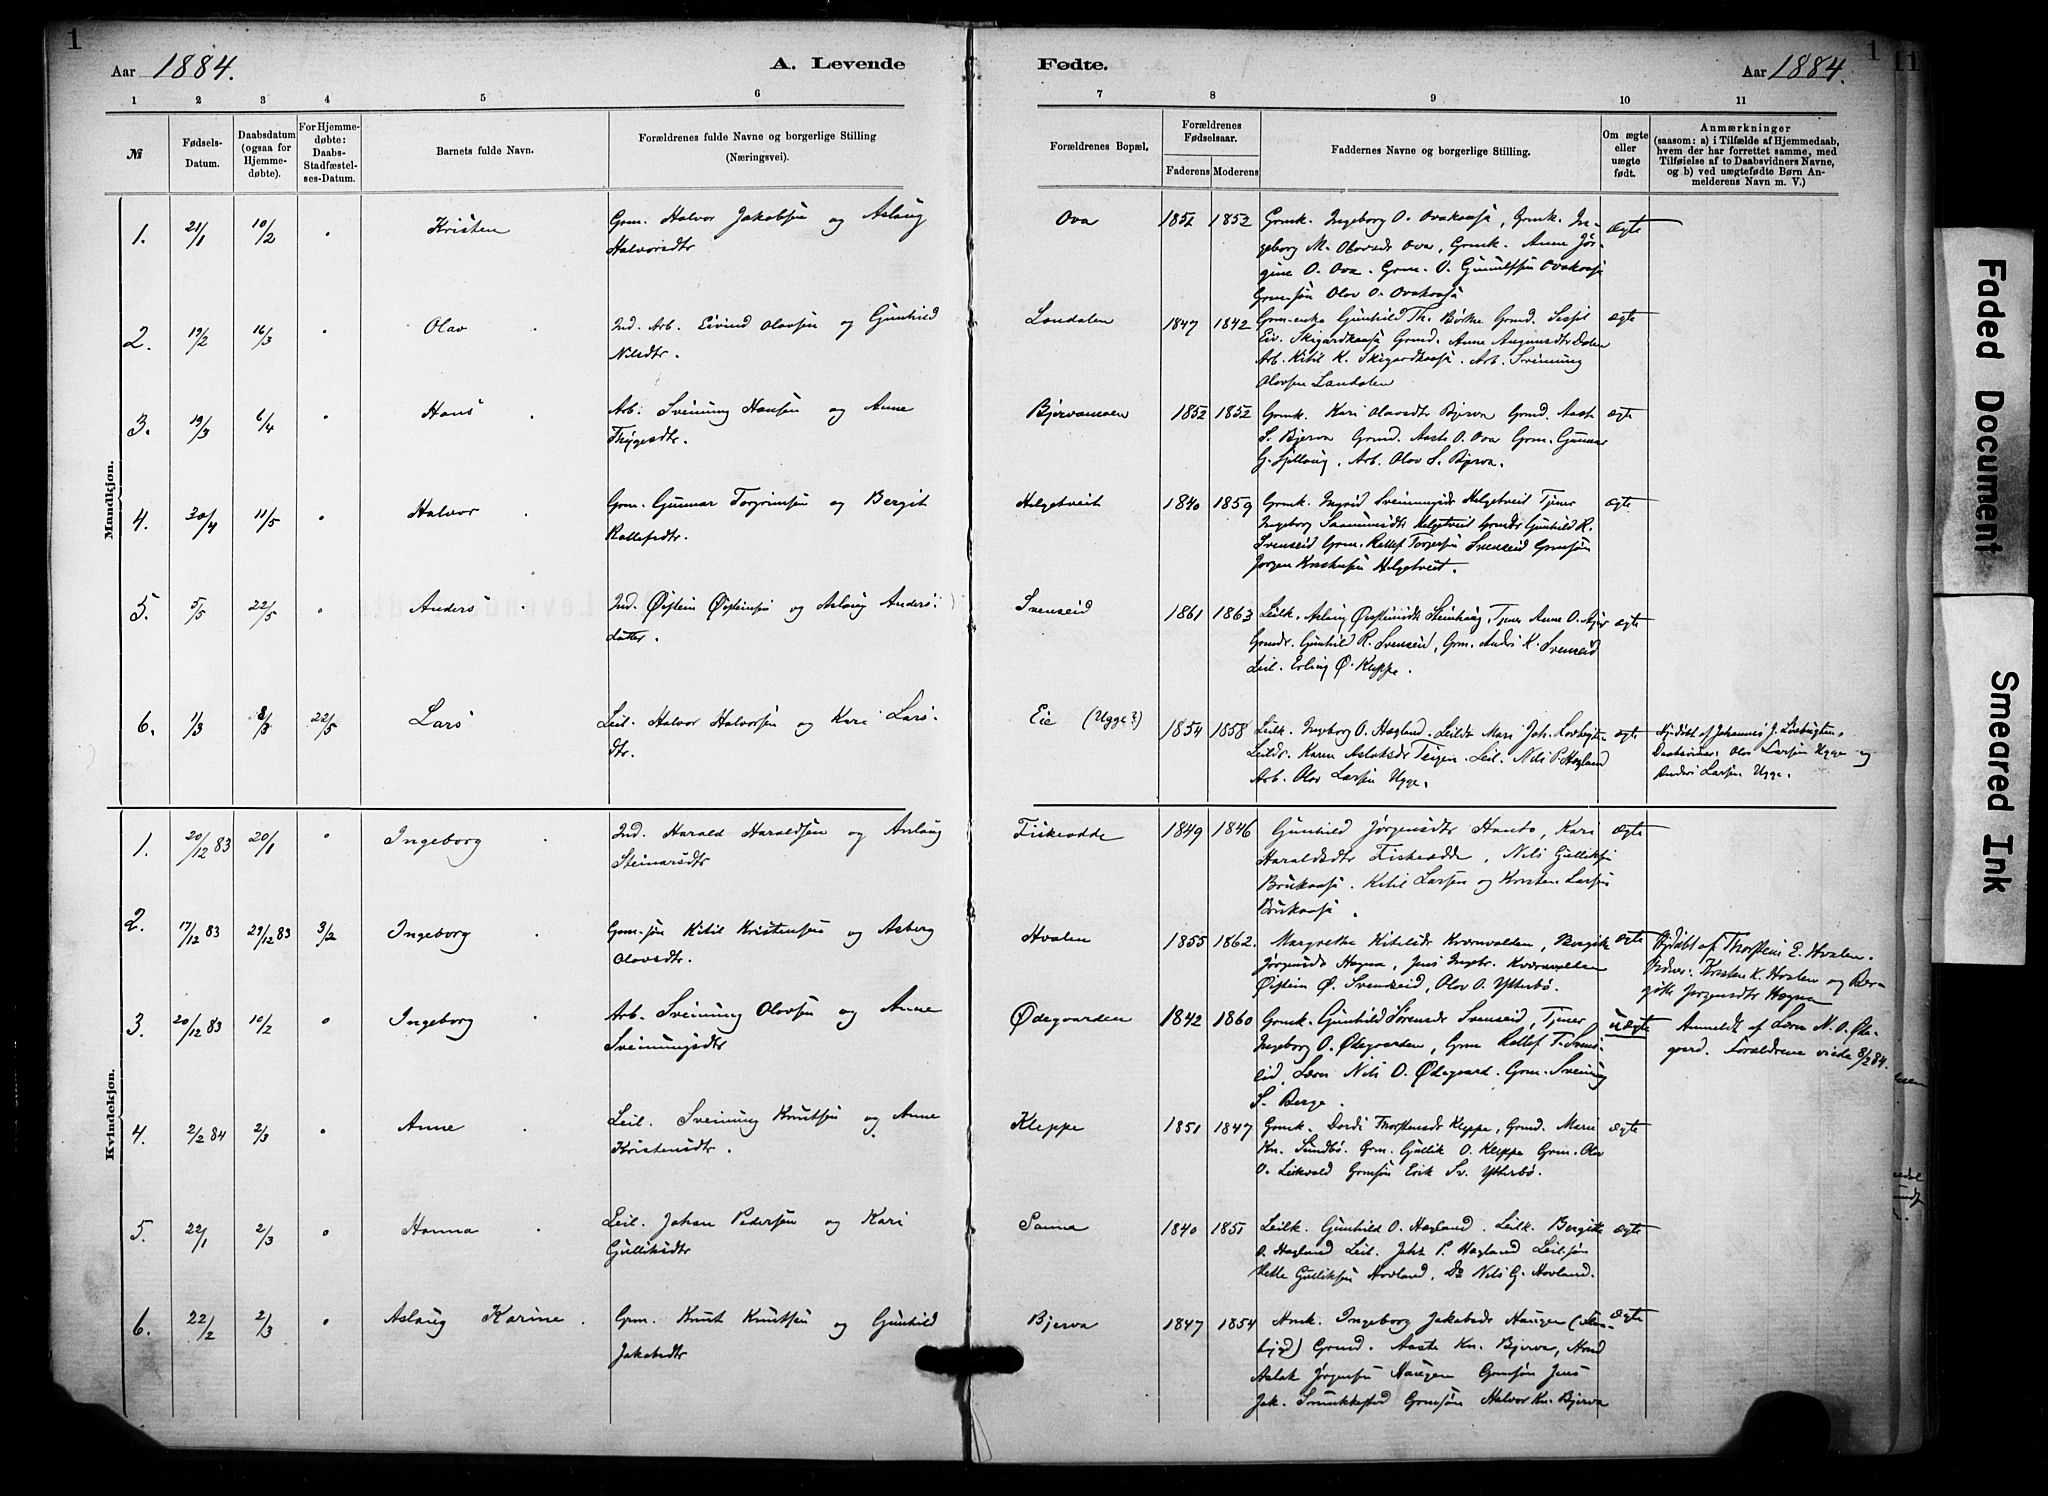 1
Aar 1884.
A. Levende
Fødte.
Aar 1884.
1
11
1 2 3 4 5 6 7 8 9 10 11
№
Fødsels-
Datum.
Daabsdatum
(ogsaa for
Hjemme-
døbte).
For Hjemme-
døbte:
Daabs-
Stadfæstel-
ses-Datum.
Barnets fulde Navn.
Forældrenes fulde Navne og borgerlige Stilling
(Næringsvei).
Forældrenes Bopæl.
Forældrenes
Fødselsaar.
Faderens Moderens
Faddernes Navne og borgerlige Stilling.
Om ægte
eller
uægte
født.
Anmærkninger
(saasom: a) i Tilfælde af Hjemmedaab,
hvem der har forrettet samme, med
Tilføielse af to Daabsvidners Navne,
og b) ved uægtefødte Børn An-
melderens Navn m. V.)
Mandkjøn.
1. 21/1 10/2 Kristen
Grm. Halvor Jakobsen og Aslaug
Halvorsdtr
Ova 1852 1852
Grmk. Ingeborg O. Ovakaasa, Grmk. In-
geborg M. Olavsdr Ova, Grmk. Anne Jør-
gine O. Ova. Grm. O. Ovakaasa
Grmsøn Olav O. Ovakaasa
ægte
2. 19/2 16/3 Olav
Ind. Arb. Eivind Olavsen og Gunhild
Nilsdtr.
Londalen 1847 1842
Grm-enke Gunhild Th. Børke Grmd.
Eiv. Skigardkaasa Grmd. Anne Dalen
Arb. Kitil K. Skigardkaasa. Arb. Sveinung
Olavsen Landalen
ægte
3. 19/3 6/4 Hans
Arb. Sveinung Hansen og Anne
Thygesdtr.
Bjervamoen 1852 1852
Grmk. Kari Olavsdtr Bjerva Grmd. Aaste
S. Bjerva Grmd. Aaste O. Ova Grm. Gunnar
G. Arb. Olav S. Bjerva.
ægte
4. 30/4 11/5 Halvor
Grm. Gunnar Torgrimsen og Bergit
Rollefsdtr.
Helgetveit 1840 1859
Grmk. Ingrid Helgetveit Tjener
Ingeborg Helgetveit Grmdr Gunhild R.
Svenseid Grm. Rollef Torgersen Svenseid Grmsøn
Jørgen Helgetveit.
ægte
5. 5/5 22/5 Anders
Ind. Øistein Øisteinsen og Aslaug Anders-
datter.
Svenseid 1861 1863
Leilk. Aslaug Øisteinsdtr Steinhaug, Tjener Anne O.
Grmdr. Gunhild R. Svenseid, Grm. Anders K. Svenseid
Leil. Erling Ø. Kleppe.
ægte
6. 1/3 8/3 22/5 Lars
Leil. Halvor Halvorsen og Kari Lars-
dtr.
Eie (Ugge?) 1854 1858
Leilk. Ingeborg O. Hægland. Leildr Mari Joh.
Leildr. Karen Aslaksdr Teigen. Leil. Nils P. Hægland
Arb. Olav Larsen Ugge.
ægte
Hjdøbt af Johannes J.
Daabsvidner: Olav Larsen Ugge og
Anders Larsen Ugge.
Kvindekjøn.
1. 20/12 83 20/1 Ingeborg
Ind. Harald Haraldsen og Aslaug
Steinarsdtr
Fiskeodde 1849 1846
Gunhild Jørgensdtr Haato, Kari
Haraldsdtr Fiskeodde, Nils Gulliksen
Brukaasa. Kitil Larsen og Kristen Larsen
Brukaasa.
ægte
2. 17/12 83 29/12 83 3/2 Ingeborg
Grm-søn Kitil Kristensen og Asberg
Olavsdtr.
Hvalen 1855 1862.
Margrethe Kitilsdr Kværnvolden, Bergith
Jørgensdr Høgna, Jens Ingebr. Kværnvolden
Øistein Ø. Svenseid, Olav O. Ytterbø.
ægte
Hjdøbt af Thorstein E. Hvalen.
Vidner: Kristen K. Hvalen og Ber-
gith Jørgensdtr Høgna
3. 20/12 83 10/2 Ingeborg
Arb. Sveinung Olavsen og Anne
Sveinungsdtr
Ødegaarden 1842 1860
Grmk. Gunhild Sørensdr Svenseid, Tjener
Ingeborg O. Ødegaarden, Grm Rollef T. Svens-
eid, Lærer Nils O. Ødegaard. Grm. Sveinung
S. Berge.
uægte
Anmeldt af Lærer N. O. Øde-
gaard. Forældrene viede 8/2 84.
4. 2/2 84 2/3 Anne
Leil. Sveinung Knutsen og Anne
Kristensdtr.
Kleppe 1851 1847
Grmk. Dordi Thorstensdr Kleppe, Grmd. Mari
Kn. Sundbø. Grm. Gullik O. Kleppe Grm. Olav
O. Leikvold Grmsøn Erik Sv. Ytterbø.
ægte
5. 22/1 2/3 Hanna
Leil. Johan Pedersen og Kari
Gulliksdtr
Sanna 1840 1851
Leilk. Gunhild O. Hægland. Leilk. Bergith
O. Hægland Leil. Joh. P. Hægland Leilsøn
Gulliksen Hovland, Do Nils G. Hovland.
ægte
6. 22/2 2/3 Aslaug Karine
Grm. Knut Knutsen og Gunhild
Jakobsdtr
Bjerva 1847 1854
Ingeborg Jakobsdr Haugen
Grmd. Aaste Kn. Bjerva,
Aslak Jørgensen Haugen Grmsøn Jens
Jak. Smukkestad Grmsøn Halvor Kn. Bjerva
ægte
Faded Document
Smeared Ink